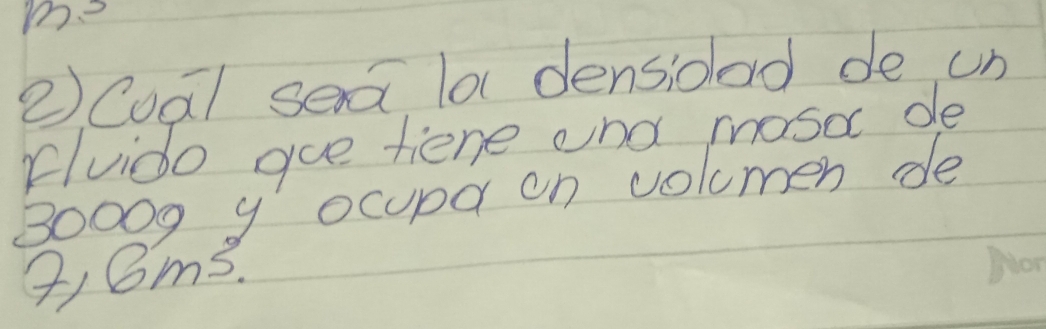 m.3
2) Cuál será la densidad de un
fluido que tiene una masa de
3000g y ocupa un volumen de
7,6m3.
Nor